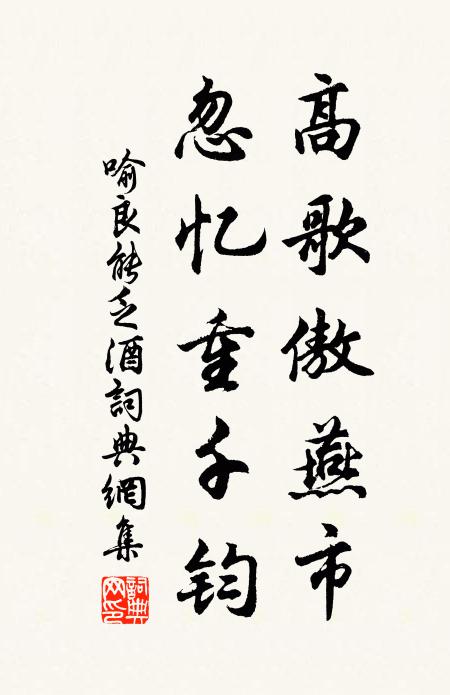 高歌傲燕市
忽忆重千钧
喻良能乏酒詞典網集
詞典網印